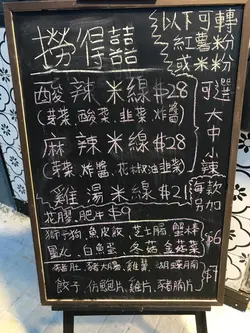 撈得囍
以下可轉
紅薯粉
或米粉
酸辣米線$28
(芽菜 酸菜 韭菜 炸醬)
麻辣米線$28
(芽菜 炸醬 花椒油 韭菜)
雞湯米線$21
可選
大中小辣
每款另加
花膠 肥牛 $9
獅子狗 魚皮餃 芝士腸 蟹棒
墨丸 白魚蛋 冬菇 金菇菜
$6
豬肚 豬大腸 雞翼 胡蝶腩
餃子 仿鮑片 雞片 豬腩片
$7